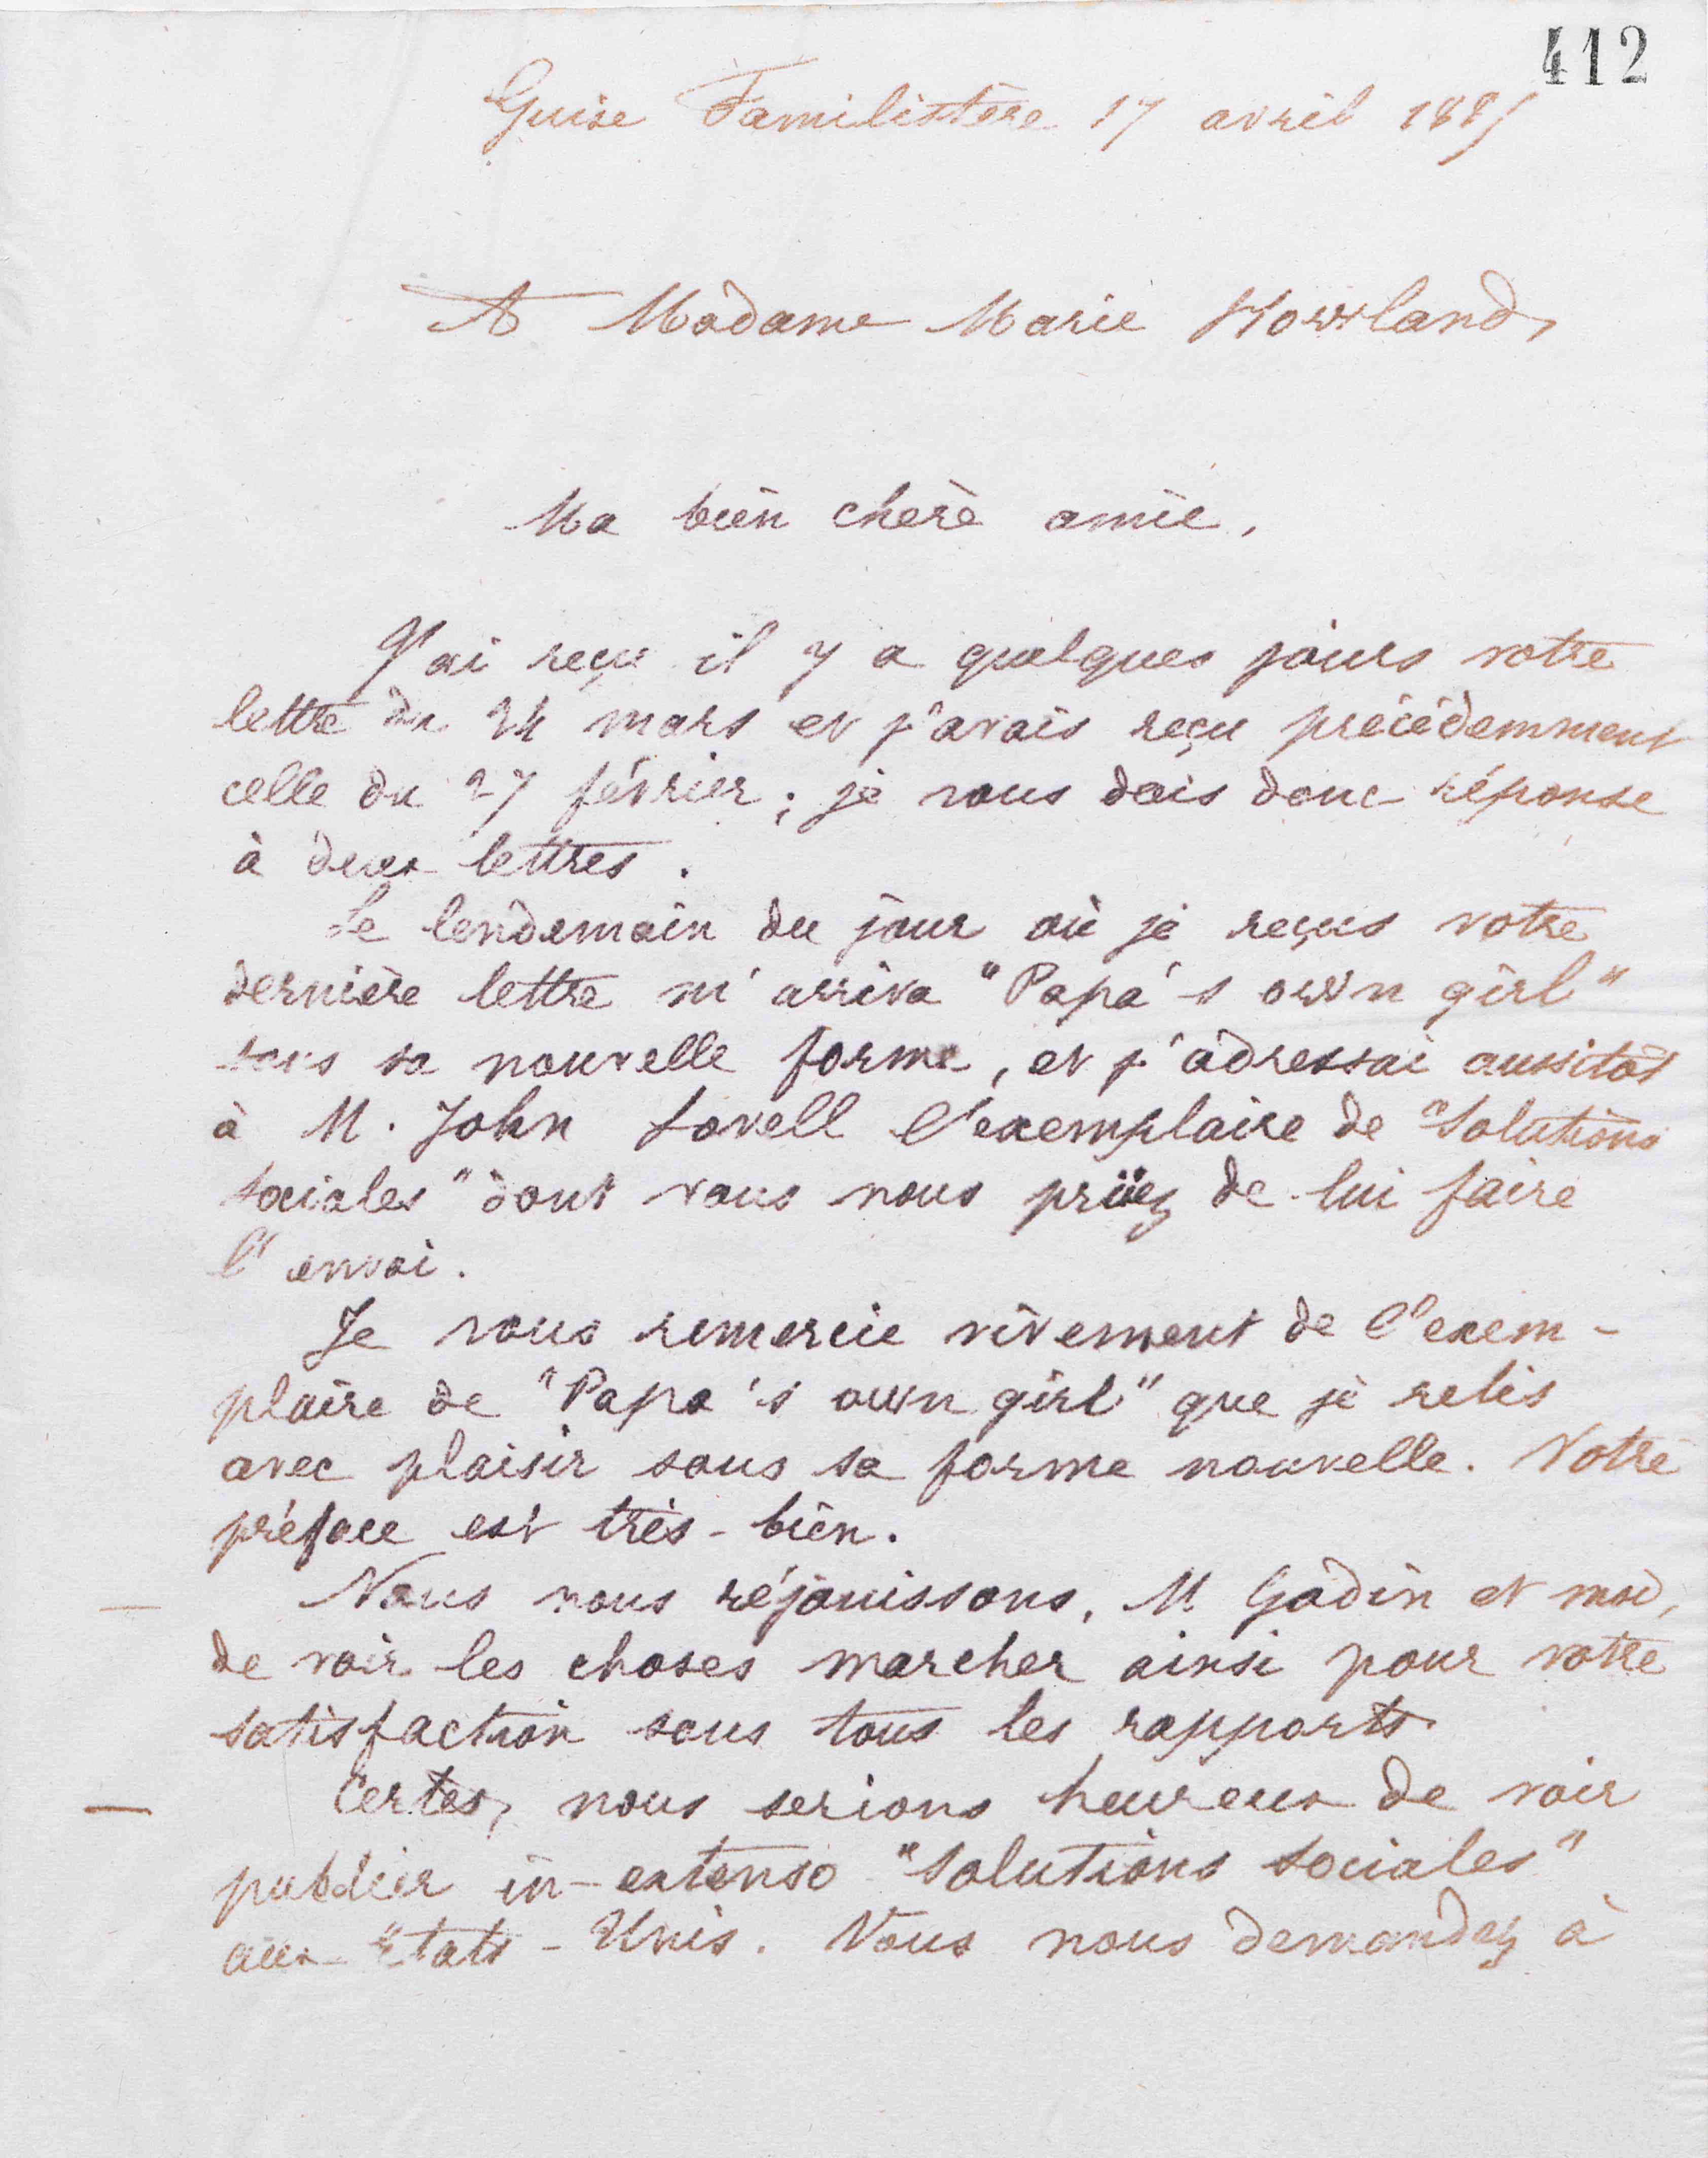 412
Guise Familistère 17 avril 1885
A Madame Marie Howland,
Ma bien chère amie,
J'ai reçu il y a quelques jours votre
lettre du 24 mars et j'avais reçu précédemment
celle du 27 février ; je vous dois donc réponse
à deux lettres.
Le lendemain du jour où je reçus votre
dernière lettre m'arriva "Papa's own girl"
sous sa nouvelle forme, et j'adressai aussitôt
à M. John Lovell l'exemplaire de "Solutions
sociales" dont vous nous priiez de lui faire
l'envoi.
Je vous remercie vivement de l'exem-
plaire de "Papa's own girl" que je relis
avec plaisir sous sa forme nouvelle. Votre
préface est très-bien.
Nous nous réjouissons, M. Godin et moi,
de voir les choses marcher ainsi pour votre
satisfaction sous tous les rapports.
Certes, nous serions heureux de voir
publier in-extenso "Solutions sociales"
aux Etats-Unis. Vous nous demandez à